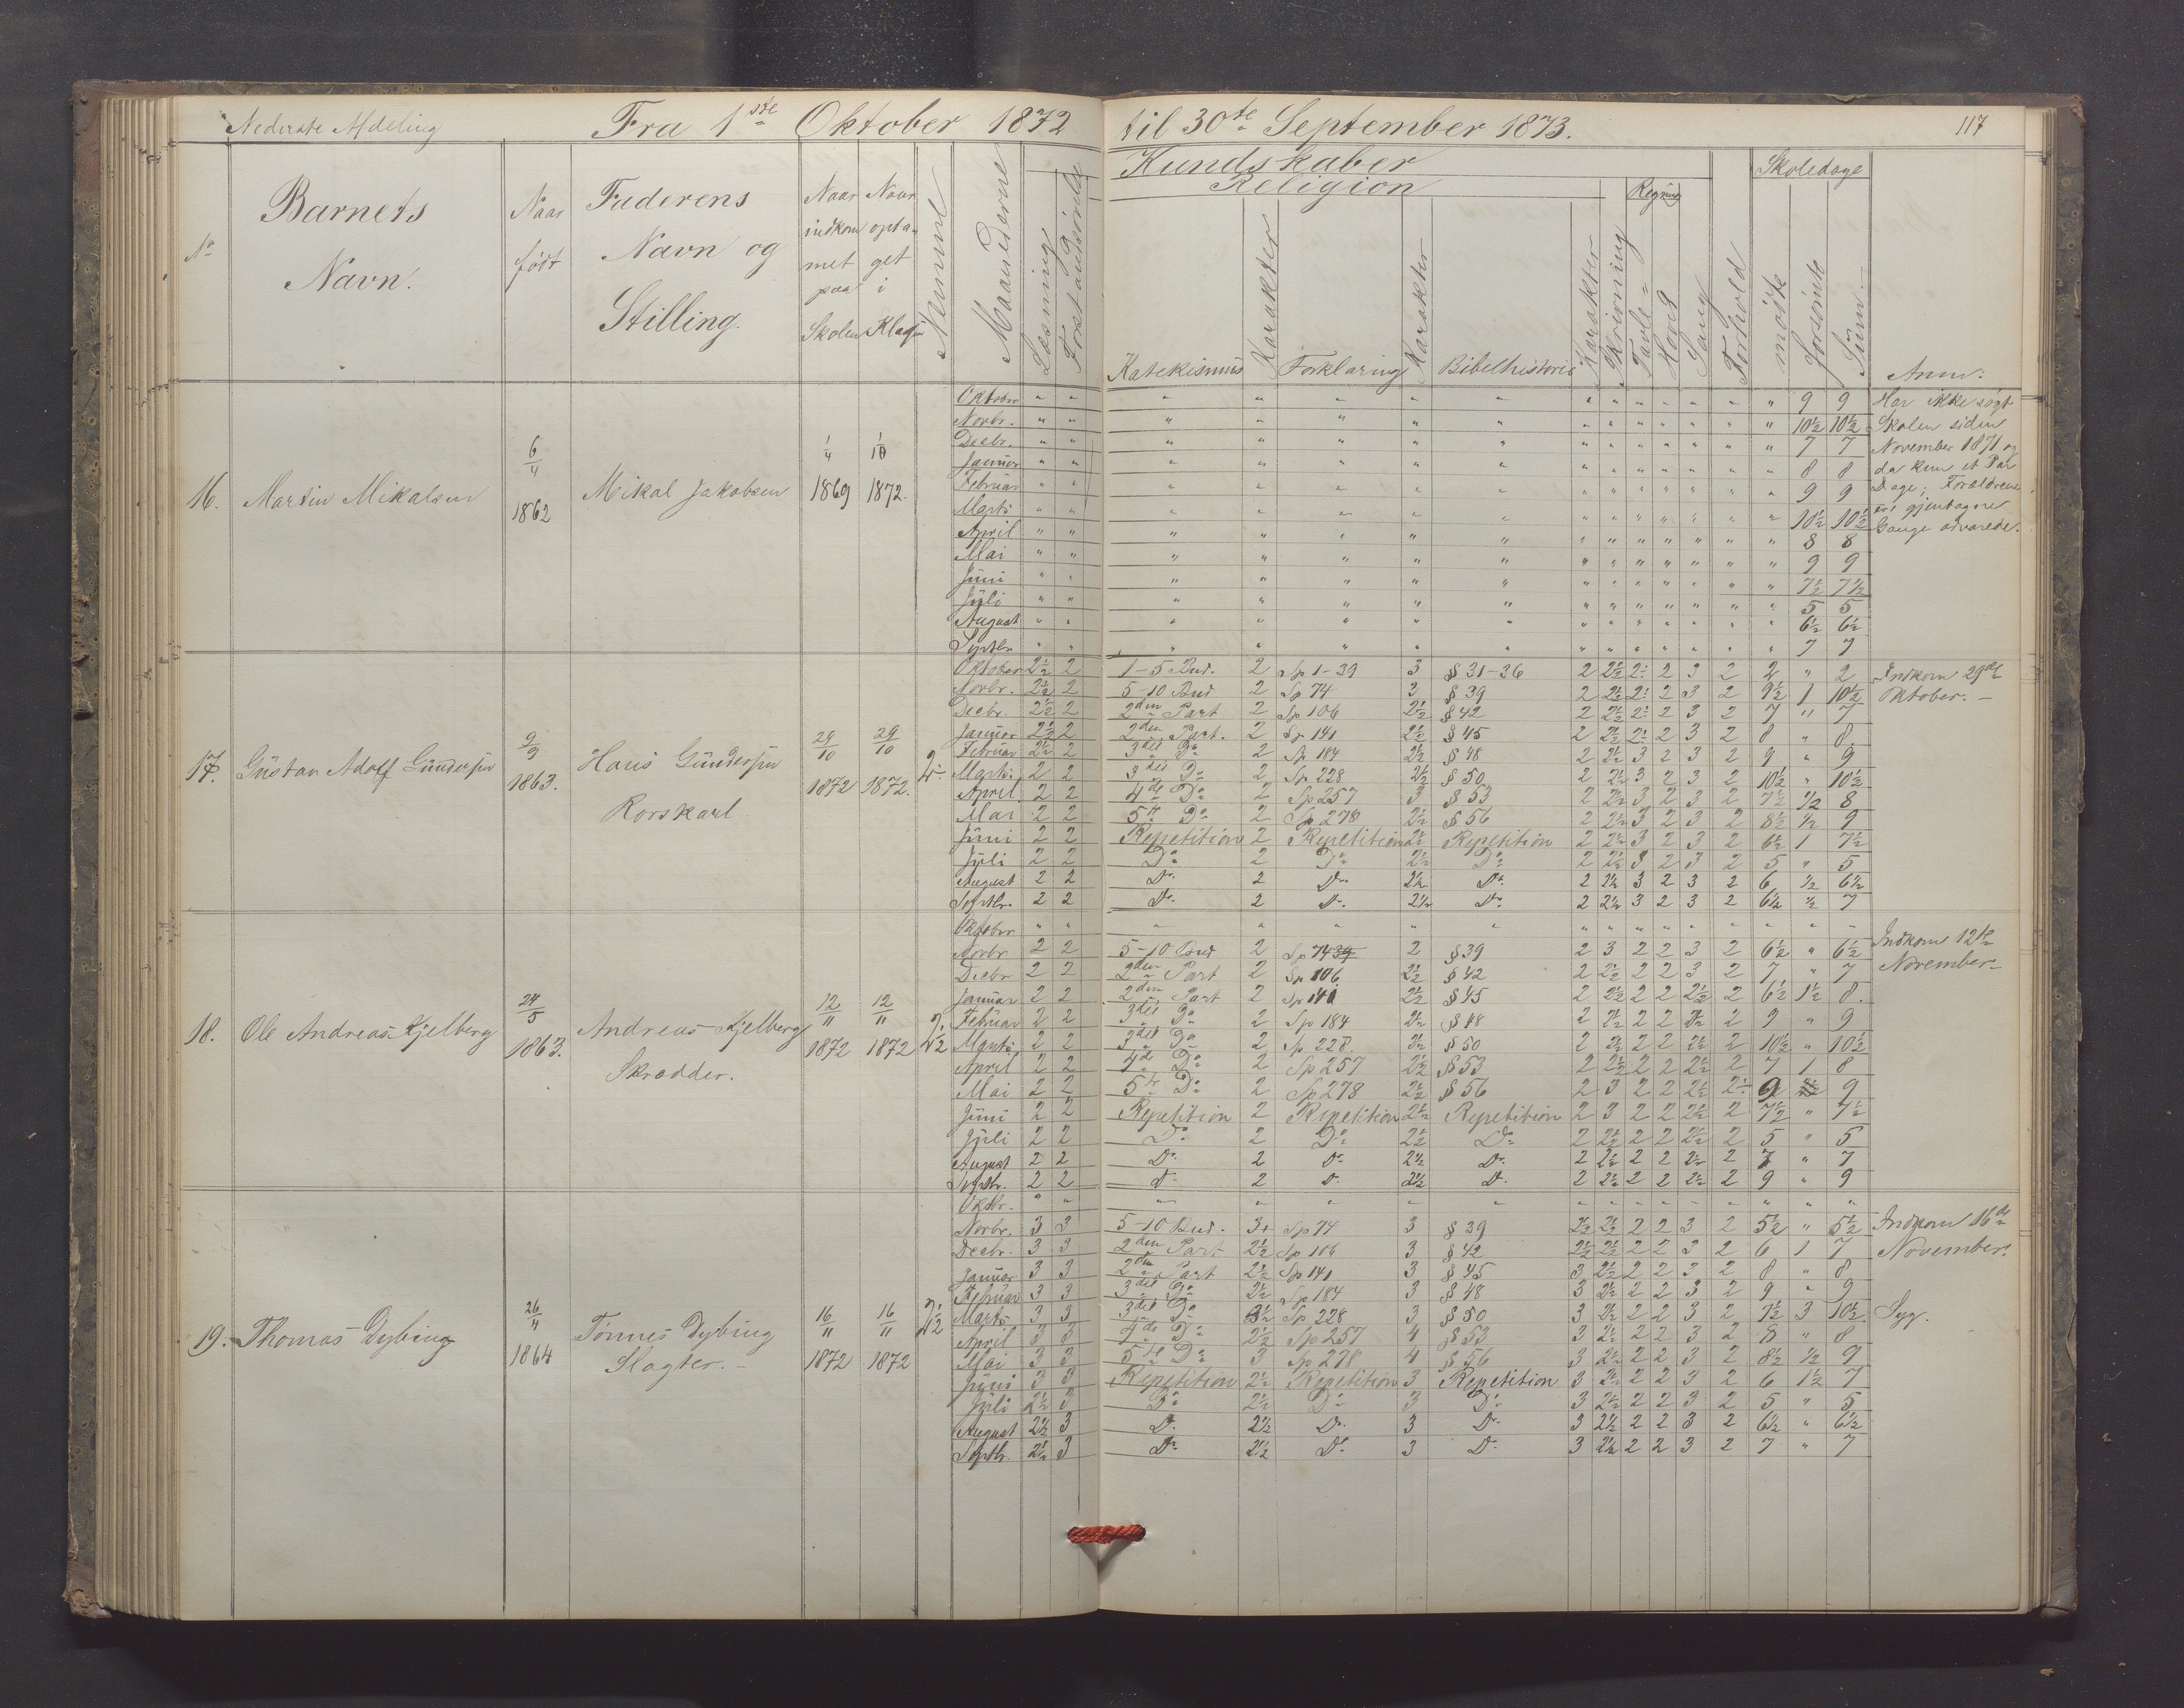 Nederste Afdeling Fra 1ste Oktober 1872 til 30te September 1873. 117
Kundskaber Skoledage
Religion Regning
No Barnets Navn. Naar født Faderens Navn og Stilling. Naar indkommet paa Skolen Naar optaget i Klassen Nemme Maanederne Læsning Forstandsøvelse Katekismus Karakter Forklaring Karakter Bibelhistorie Karakter Skrivning Tavle= Hoved Sang Forhold mødte forsømte Sum. Anm.
16. Martin Mikalsen 6/4 1862 Mikal Jakobsen 1/4 1869 1/10 1872.
Oktober " " " " " " " " " " " " " " " 9 9 Har ikke søgt
Novbr. " " " " " " " " " " " " " " " 10½ 10½ Skolen siden
Decbr. " " " " " " " " " " " " " " " 7 7 November 1871 og
Januar " " " " " " " " " " " " " " " 8 8 da kun et Par
Februar " " " " " " " " " " " " " " " 9 9 Dage; Forældrene
Marts " " " " " " " " " " " " " " " 10½ 10½ er gjentagne
April " " " " " " " " " " " " " " " 8 8 Gange advarede.
Mai " " " " " " " " " " " " " " " 9 9
Juni " " " " " " " " " " " " " " " 7½ 7½
Juli " " " " " " " " " " " " " " " 5 5
August " " " " " " " " " " " " " " " 6½ 6½
Septbr. " " " " " " " " " " " " " " " 7 7
17. Gustav Adolf Gundersen 9/9 1863. Hans Gundersen Rorskarl 29/10 1872 29/10 1872.
Oktober 2½ 2 1-5 Bud. 2 Sp 1-39 3 § 31-36 2 2½ 2÷ 2 3 2 2 " 2 Indkom 29de
Novbr. 2½ 2 5-10 Bud 2 Sp 74 3 § 39 2 2½ 2÷ 2 3 2 9½ 1 10½ Oktober.
Decbr. 2½ 2 2den Part 2 Sp 106 2½ § 42 2 2½ 2÷ 2 3 2 7 " 7
Januar 2½ 2 2den Part. 2 Sp 141 2½ § 45 2 2½ 2÷ 2 3 2 8 " 8
Februar 2½ 2 3die Do 2 Sp 184 2½ § 48 2 2½ 3 2 3 2 9 " 9
Marts 2 2 3die Do 2 Sp 228 2½ § 50 2 2½ 3 2 3 2 10½ " 10½
April 2 2 4de Do 2 Sp 257 3 § 53 2 2½ 3 2 3 2 7½ ½ 8
Mai 2 2 5te Do 2 Sp 278 2½ § 56 2 2½ 3 2 3 2 8½ ½ 9
Juni 2 2 Repetition 2 Repetition 2½ Repetition 2 2½ 3 2 3 2 6½ 1 7½
Juli 2 2 Do 2 Do 2½ Do 2 2½ 3 2 3 2 5 " 5
August 2 2 Do 2 Do 2½ Do 2 2½ 3 2 3 2 6 ½ 6½
Septbr. 2 2 Do 2 Do 2½ Do 2 2½ 3 2 3 2 6½ ½ 7
18. Ole Andreas Kjelberg 24/5 1863. Andreas Kjelberg Skrædder. 12/11 1872 12/11 1872
Oktober " " " " " " " " " " " " " " " " "
Novbr 2 2 5-10 Bud 2 Sp 74 39 2 § 39 2 3 2 2 3 2 6½ " 6½ Indkom 12te
Decbr 2 2 2den Part 2 Sp 106. 2½ § 42 2 2½ 2 2 3 2 7 " 7 November
Januar 2 2 2den Part 2 Sp 141 2½ § 45 2 2½ 2 2 2½ 2 6½ 1½ 8.
Februar 2 2 3die Do 2 Sp 184 2½ § 48 2 2½ 2 2 2½ 2 9 " 9
Marts 2 2 3die Do 2 Sp 228. 2½ § 50 2 2½ 2 2 2½ 2 10½ " 10½
April 2 2 4de Do 2 Sp 257 2½ § 53 2 2½ 2 2 2½ 2 7 1 8
Mai 2 2 5te Do 2 Sp 278 2½ § 56 2 3 2 2 2½ 2÷ 9 9
Juni 2 2 Repetition 2 Repetition 2½ Repetition 2 3 2 2 2½ 2 7½ " 7½
Juli 2 2 Do 2 Do 2½ Do 2 2½ 2 2 2½ 2 5 " 5
August 2 2 Do 2 Do 2½ Do 2 2½ 2 2 2½ 2 7 " 7
Septbr. 2 2 Do 2 Do 2½ Do 2 2½ 2 2 2½ 2 9 " 9
19. Thomas Dybing 26/11 1864 Tønnes Dybing Slagter. 16/11 1872 16/11 1872
Oktbr. " " " " " " " " " " " " " " " " "
Novbr. 3 3 5-10 Bud. 3+ Sp 74 3 § 39 2½ 2½ 2 2 3 2 5½ " 5½ Indkom 16de
Decbr. 3 3 2den Part 2½ Sp 106 3 § 42 2½ 2½ 2 2 3 2 6 1 7 November.
Januar 3 3 2den Part 2½ Sp 141 3 § 45 3 2½ 2 2 3 2 8 " 8
Februar 3 3 3die Do 2½ Sp 184 3 § 48 3 2½ 2 2 3 2 9 " 9
Marts 3 3 3die Do 2½ Sp 228 3 § 50 3 2½ 2 2 3 2 7½ 3 10½ Syg.
April 3 3 4de Do 2½ Sp 257 4 § 53 3 2½ 2 2 3 2 8 " 8
Mai 3 3 5te Do 3 Sp 278 4 § 56 3 2½ 2 2 3 2 8½ ½ 9
Juni 3 3 Repetition 2½ Repetition 3 Repetition 3 2½ 2 2 3 2 6 1½ 7
Juli 2½ 3 Do 2½ Do 3 Do 3 2½ 2 2 3 2 5 " 5
August 2½ 3 Do 2½ Do 3 Do 3 2½ 2 2 3 2 6½ " 6½
Septbr. 2½ 3 Do 2½ Do 3 Do 3 2½ 2 2 3 2 7 " 7